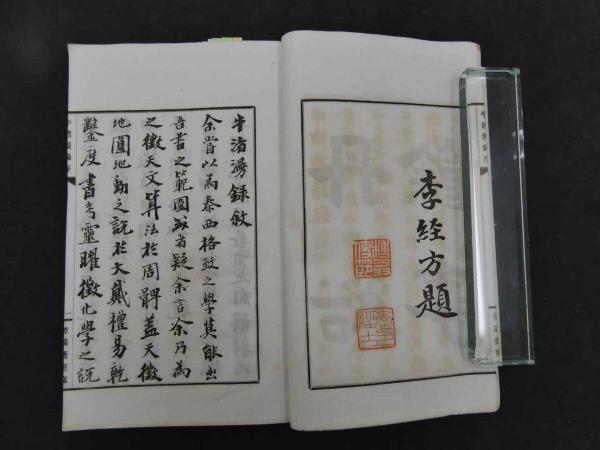 李經方題
牛渚漫錄敘
余嘗以為泰西格致之學莫能出
吾書之範圍或者疑余言余乃為
之徵天文算法於周髀蓋天徵
地圓地動之說於大戴禮易乾
鑿度書考靈曜徵化學之說